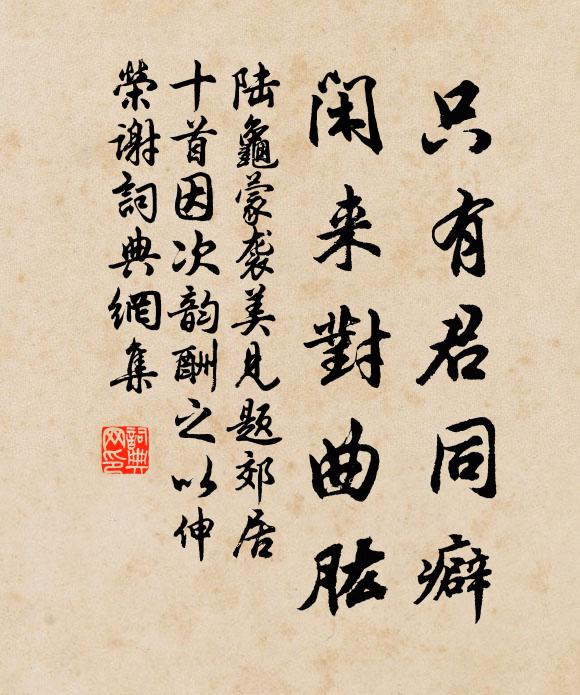 只有君同癖
闲来對曲肱
陆龜蒙袭美见题郊居
十首因次韵酬之以伸
榮谢詞典網集
詞典
网印